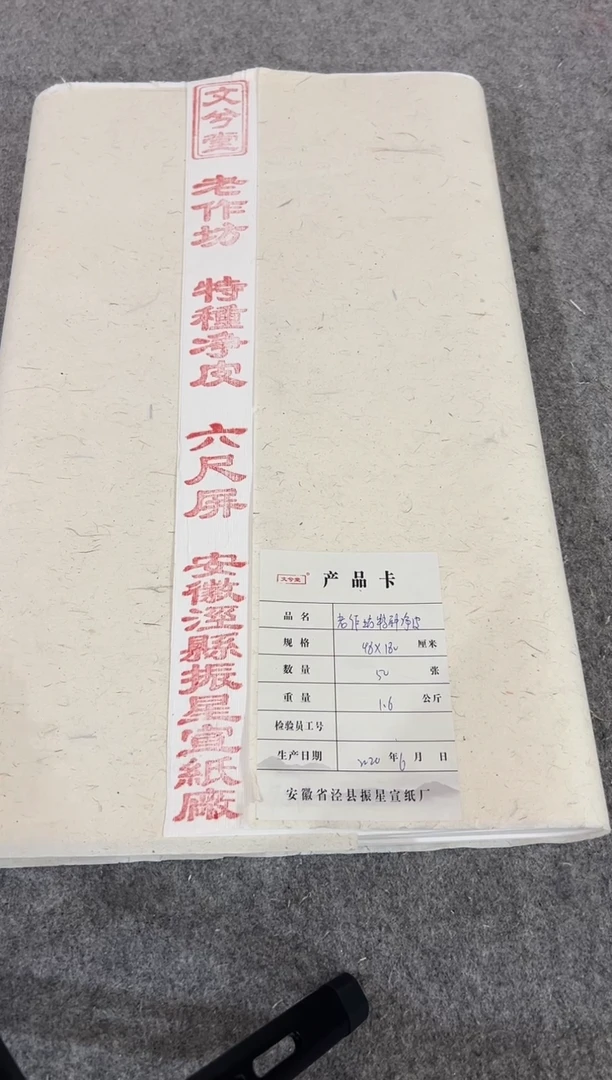 文兮堂
老作坊
特種净皮
六尺屏
安徽涇縣振星宣紙廠
文兮堂
产品卡
品名 老作坊特种净皮
规格 48×180 厘米
数量 50 张
重量 1.6 公斤
检验员工号
生产日期 2020 年 6 月 日
安徽省泾县振星宣纸厂